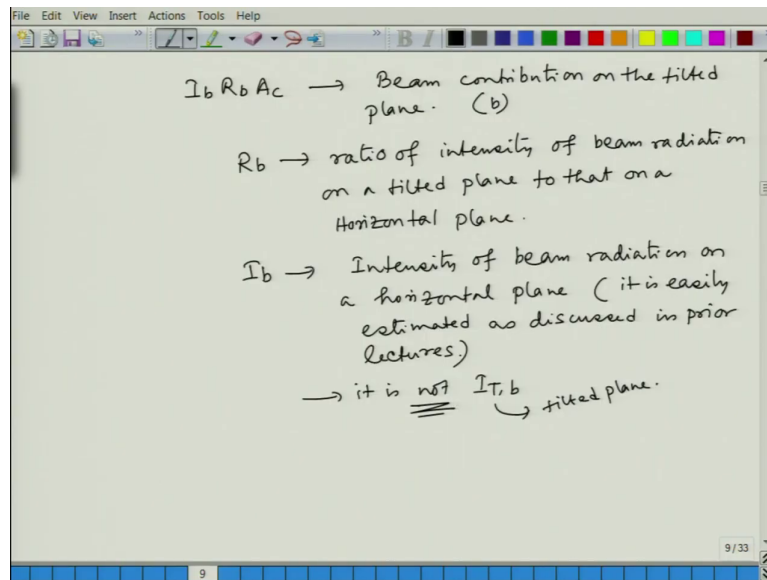 File Edit View Insert Actions Tools Help
B I
I_b R_b A_c → Beam contribution on the tilted
plane. (b)
R_b → ratio of intensity of beam radiation
on a tilted plane to that on a
Horizontal plane.
I_b → Intensity of beam radiation on
a horizontal plane (it is easily
estimated as discussed in prior
lectures.)
→ it is not I_T,b
tilted plane.
9/33
9